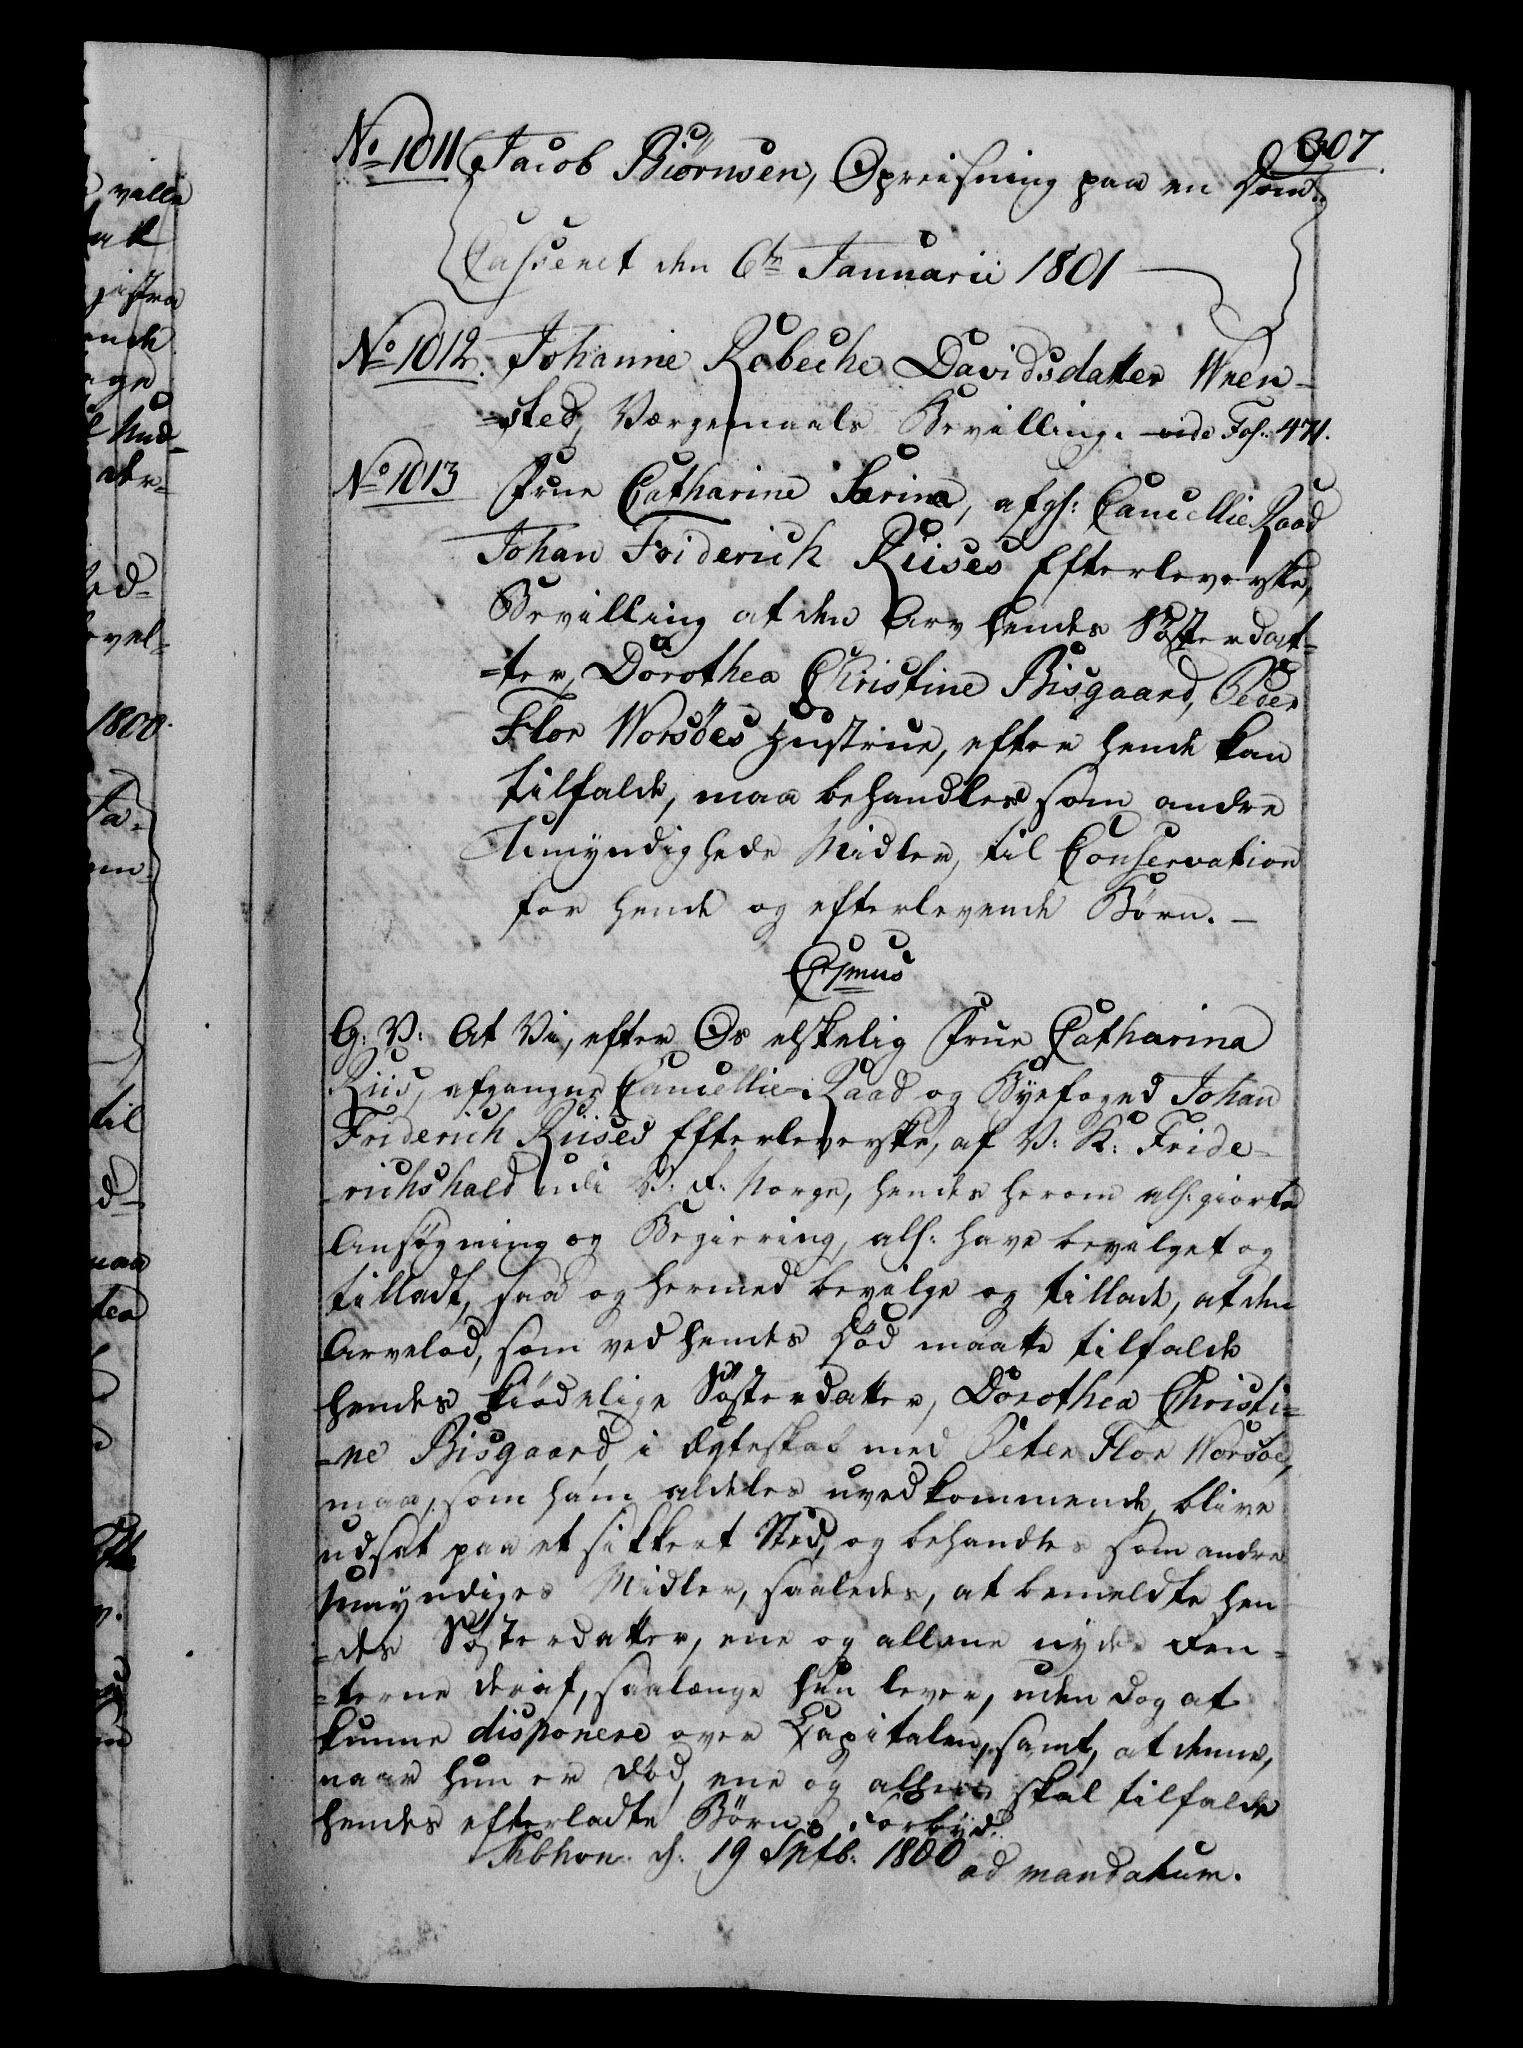 307
No 1011 Jacob Biørnsen, Opreisning paa en Dom.
Casseret den 6te Januarii 1801
No 1012. Johanne Rebeche Davidsdatter Wren-
-sted, Værgemaals Bevilling. vide Fol: 471.
No 1013 Frue Catharine Sarina, afg: Cancellie Raad
Johan Friderich Riises Efterleverske,
Bevilling at den Arv hendes Søsterdat-
-ter, Dorothea Christine Bisgaard, Peder
Flor Worsöes Hustrue, efter hende kan
tilfalde, maa behandles som andre
Umyndighede Midler, til Conservation
for hende og efterlevende Børn.
G: V: At Vi, efter Os elskelig Frue Catharina
Riis, afgangne Cancellie-Raad og Byefoged Johan
Friderich Riises Efterleverske, af V: K: Fride-
-richshald udi V: R: Norge, hendes herom alf: giorte
Ansøgning og Begiering, alf: have bevilget og
tilladt, saa og hermed bevilge og tillade, at den
Arvelod, som ved hendes Død maatte tilfalde
hendes kiødelige Søsterdatter, Dorothea Christi-
-ne Bisgaard, i Ægteskab med Peter Flor Worsöe,
maa, som ham aldeles uvedkommende, blive
udsat paa et sikkert Sted, og behandles som andre
Umyndiges Midler, saaledes, at bemeldte hen
-des Søsterdatter, ene og allene nyder Ren-
-terne deraf, saalænge hun lever, uden dog at
kunne disponere over Kapitalen, samt, at denne,
naar hun er død, ene og allene skal tilfalde
hendes efterladte Børn. Forbyd:
Kbhvn. d: 19 Sptb: 1800
ad mandatum.
valle
1800.
til